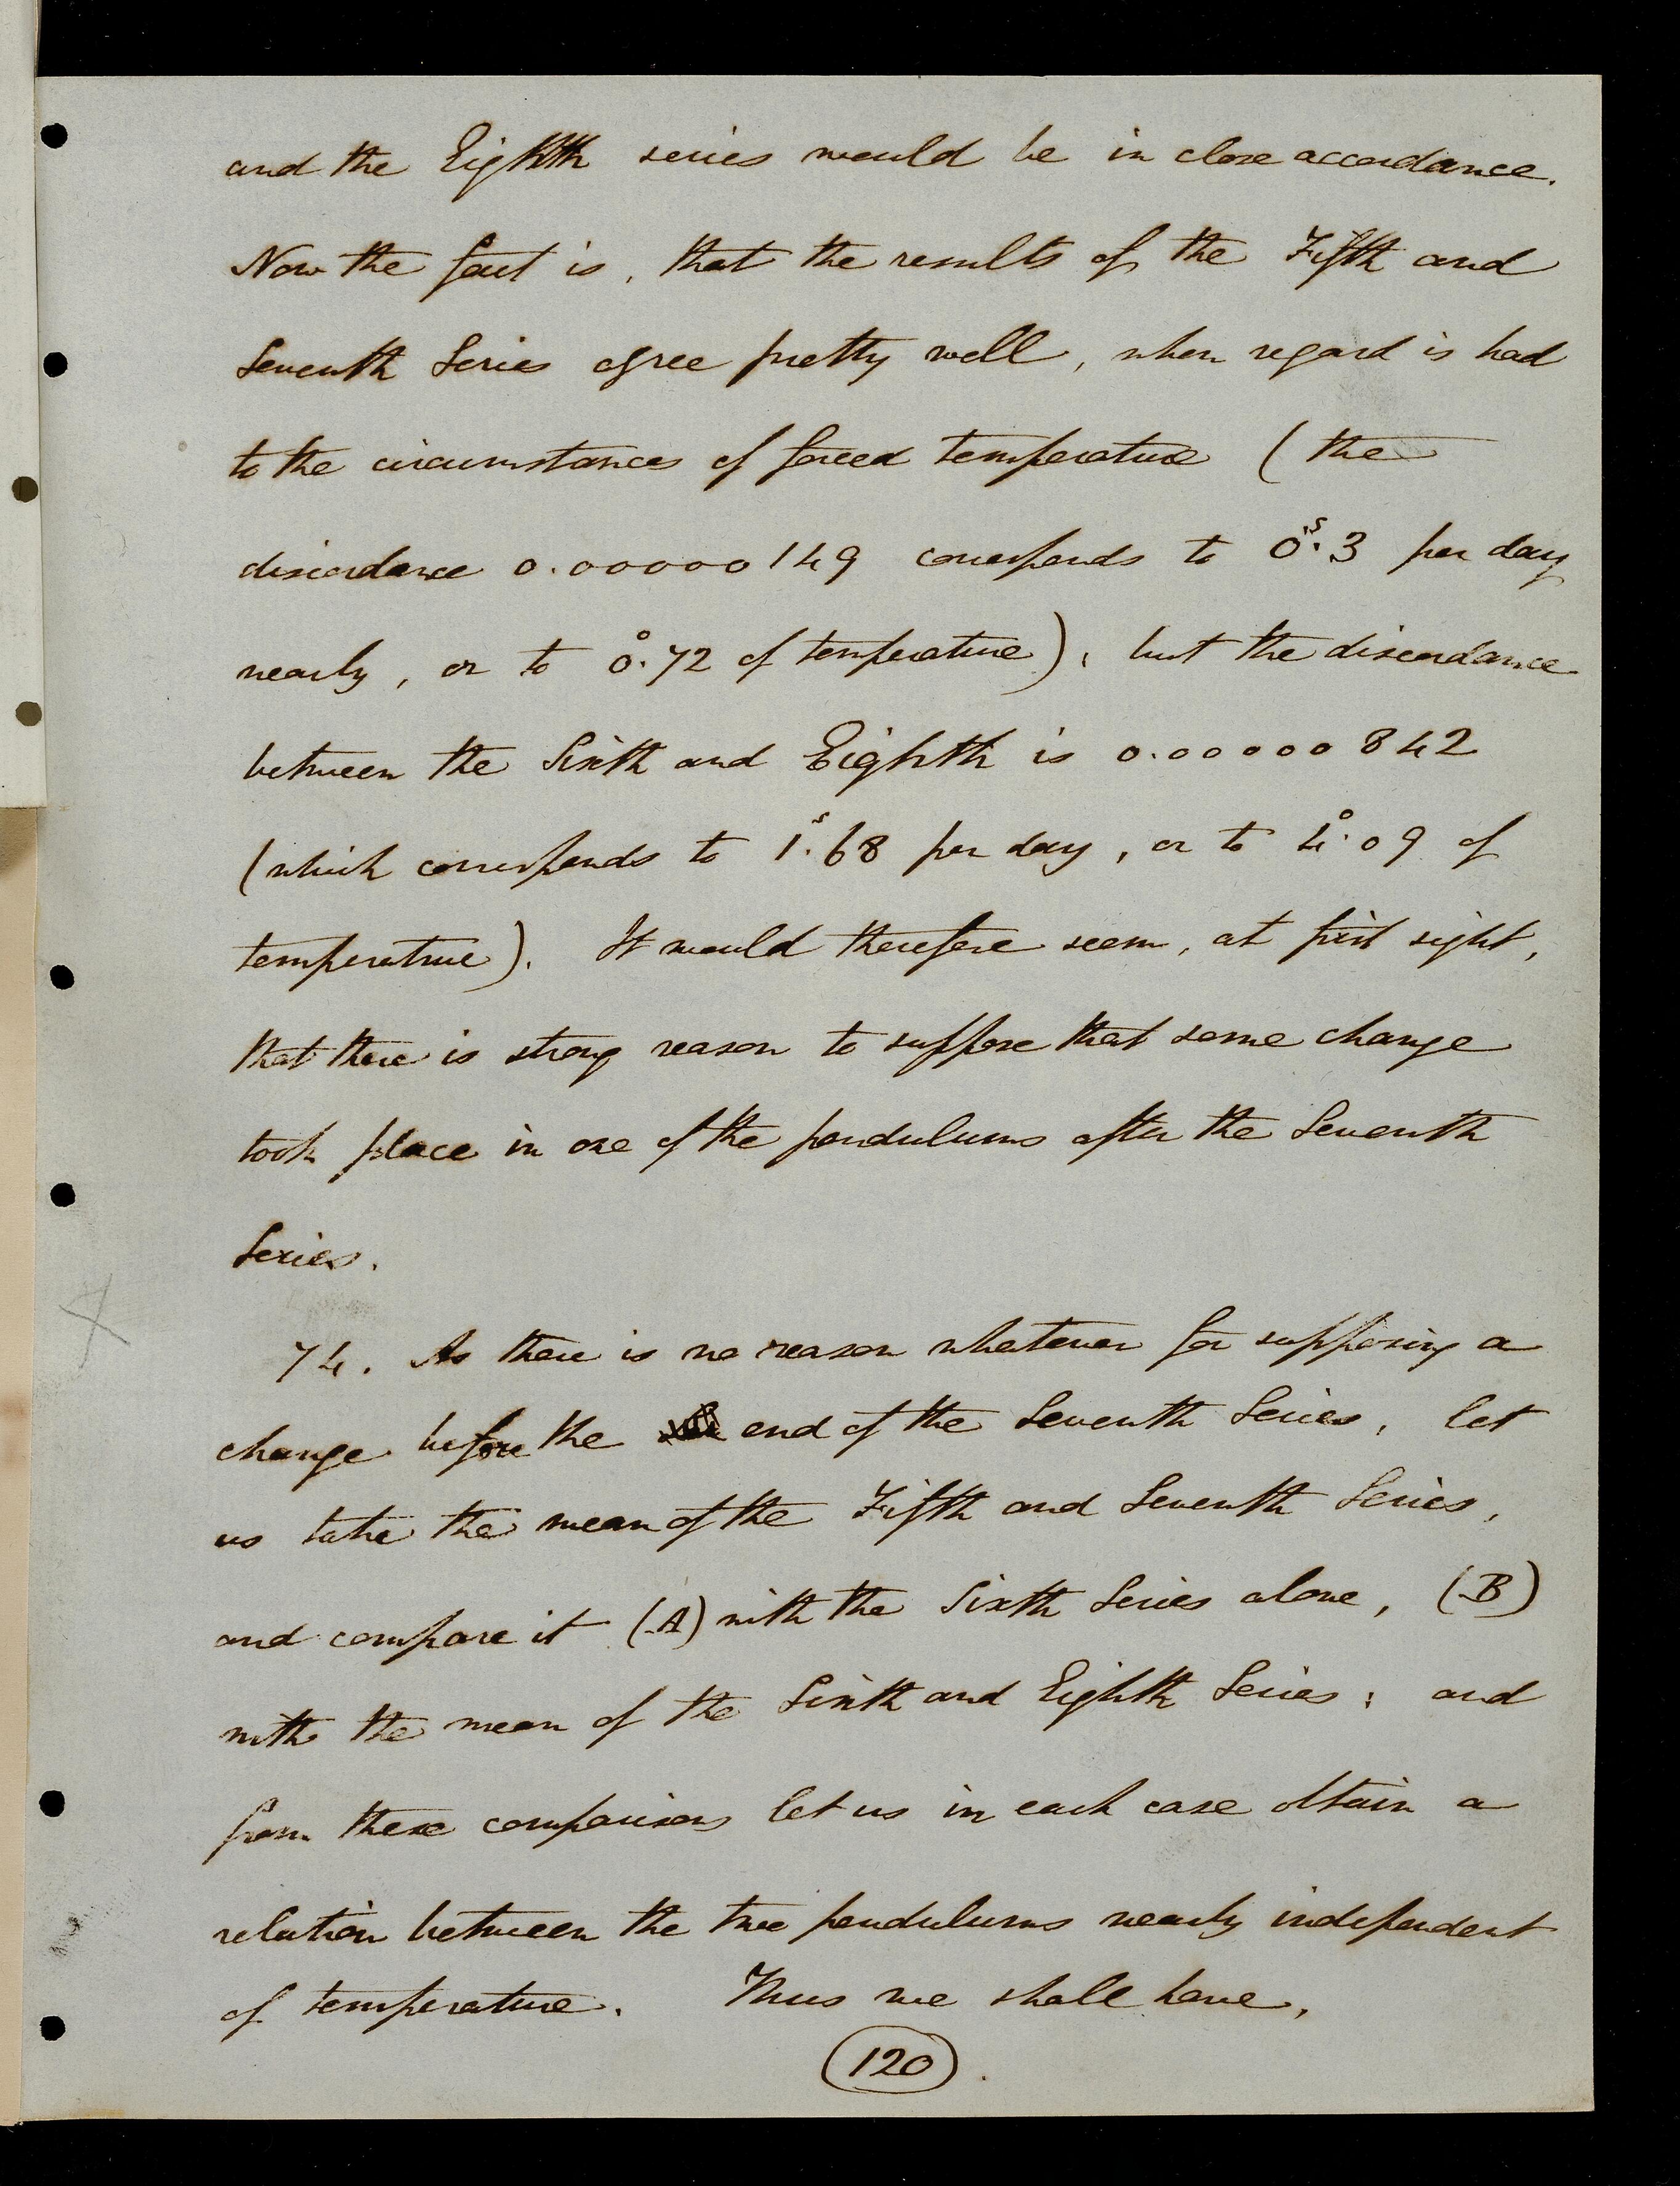 and the Eighth series would be in close accordance.
Now the fact is, that the results of the Fifth and
Seventh Series agree pretty well, when regard is had
to the circumstances of forced temperature (the
discordance 0.00000149 corresponds to 0ˢ.3 per day
nearly, or to 0°.72 of temperature), but the discordance
between the Sixth and Eighth is 0.00000842
(which corresponds to 1ˢ.68 per day, or to 4°.09 of
temperature). It would therefore seem, at first sight,
that there is strong reason to suppose that some change
took place in one of the pendulums after the Seventh
Series.
74. As there is no reason whatever for supposing a
change before the end of the Seventh Series, let
us take the mean of the Fifth and Seventh Series,
and compare it (A) with the Sixth Series alone, (B)
with the mean of the Sixth and Eighth Series; and
from these comparisons let us in each case obtain a
relation between the two pendulums nearly independent
of temperature. Thus we shall have,
120.